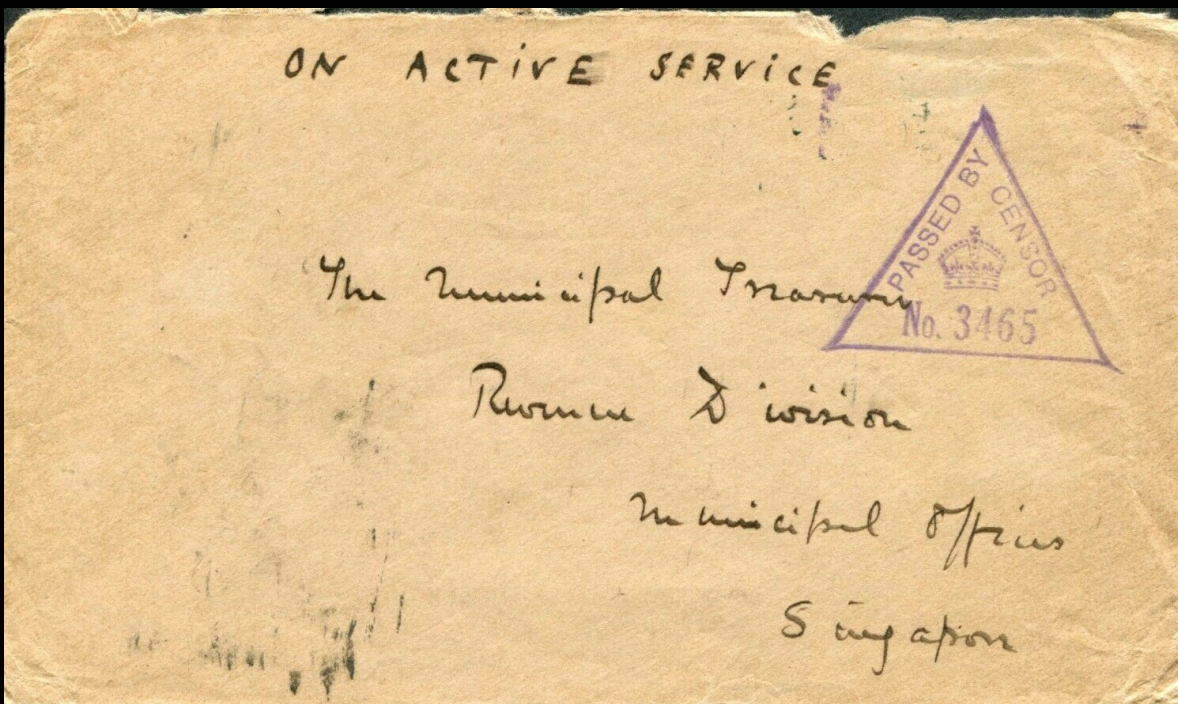 ON ACTIVE SERVICE
PASSED BY CENSOR
No. 3465
The Municipal Treasurer
Revenue Division
Municipal Offices
Singapore